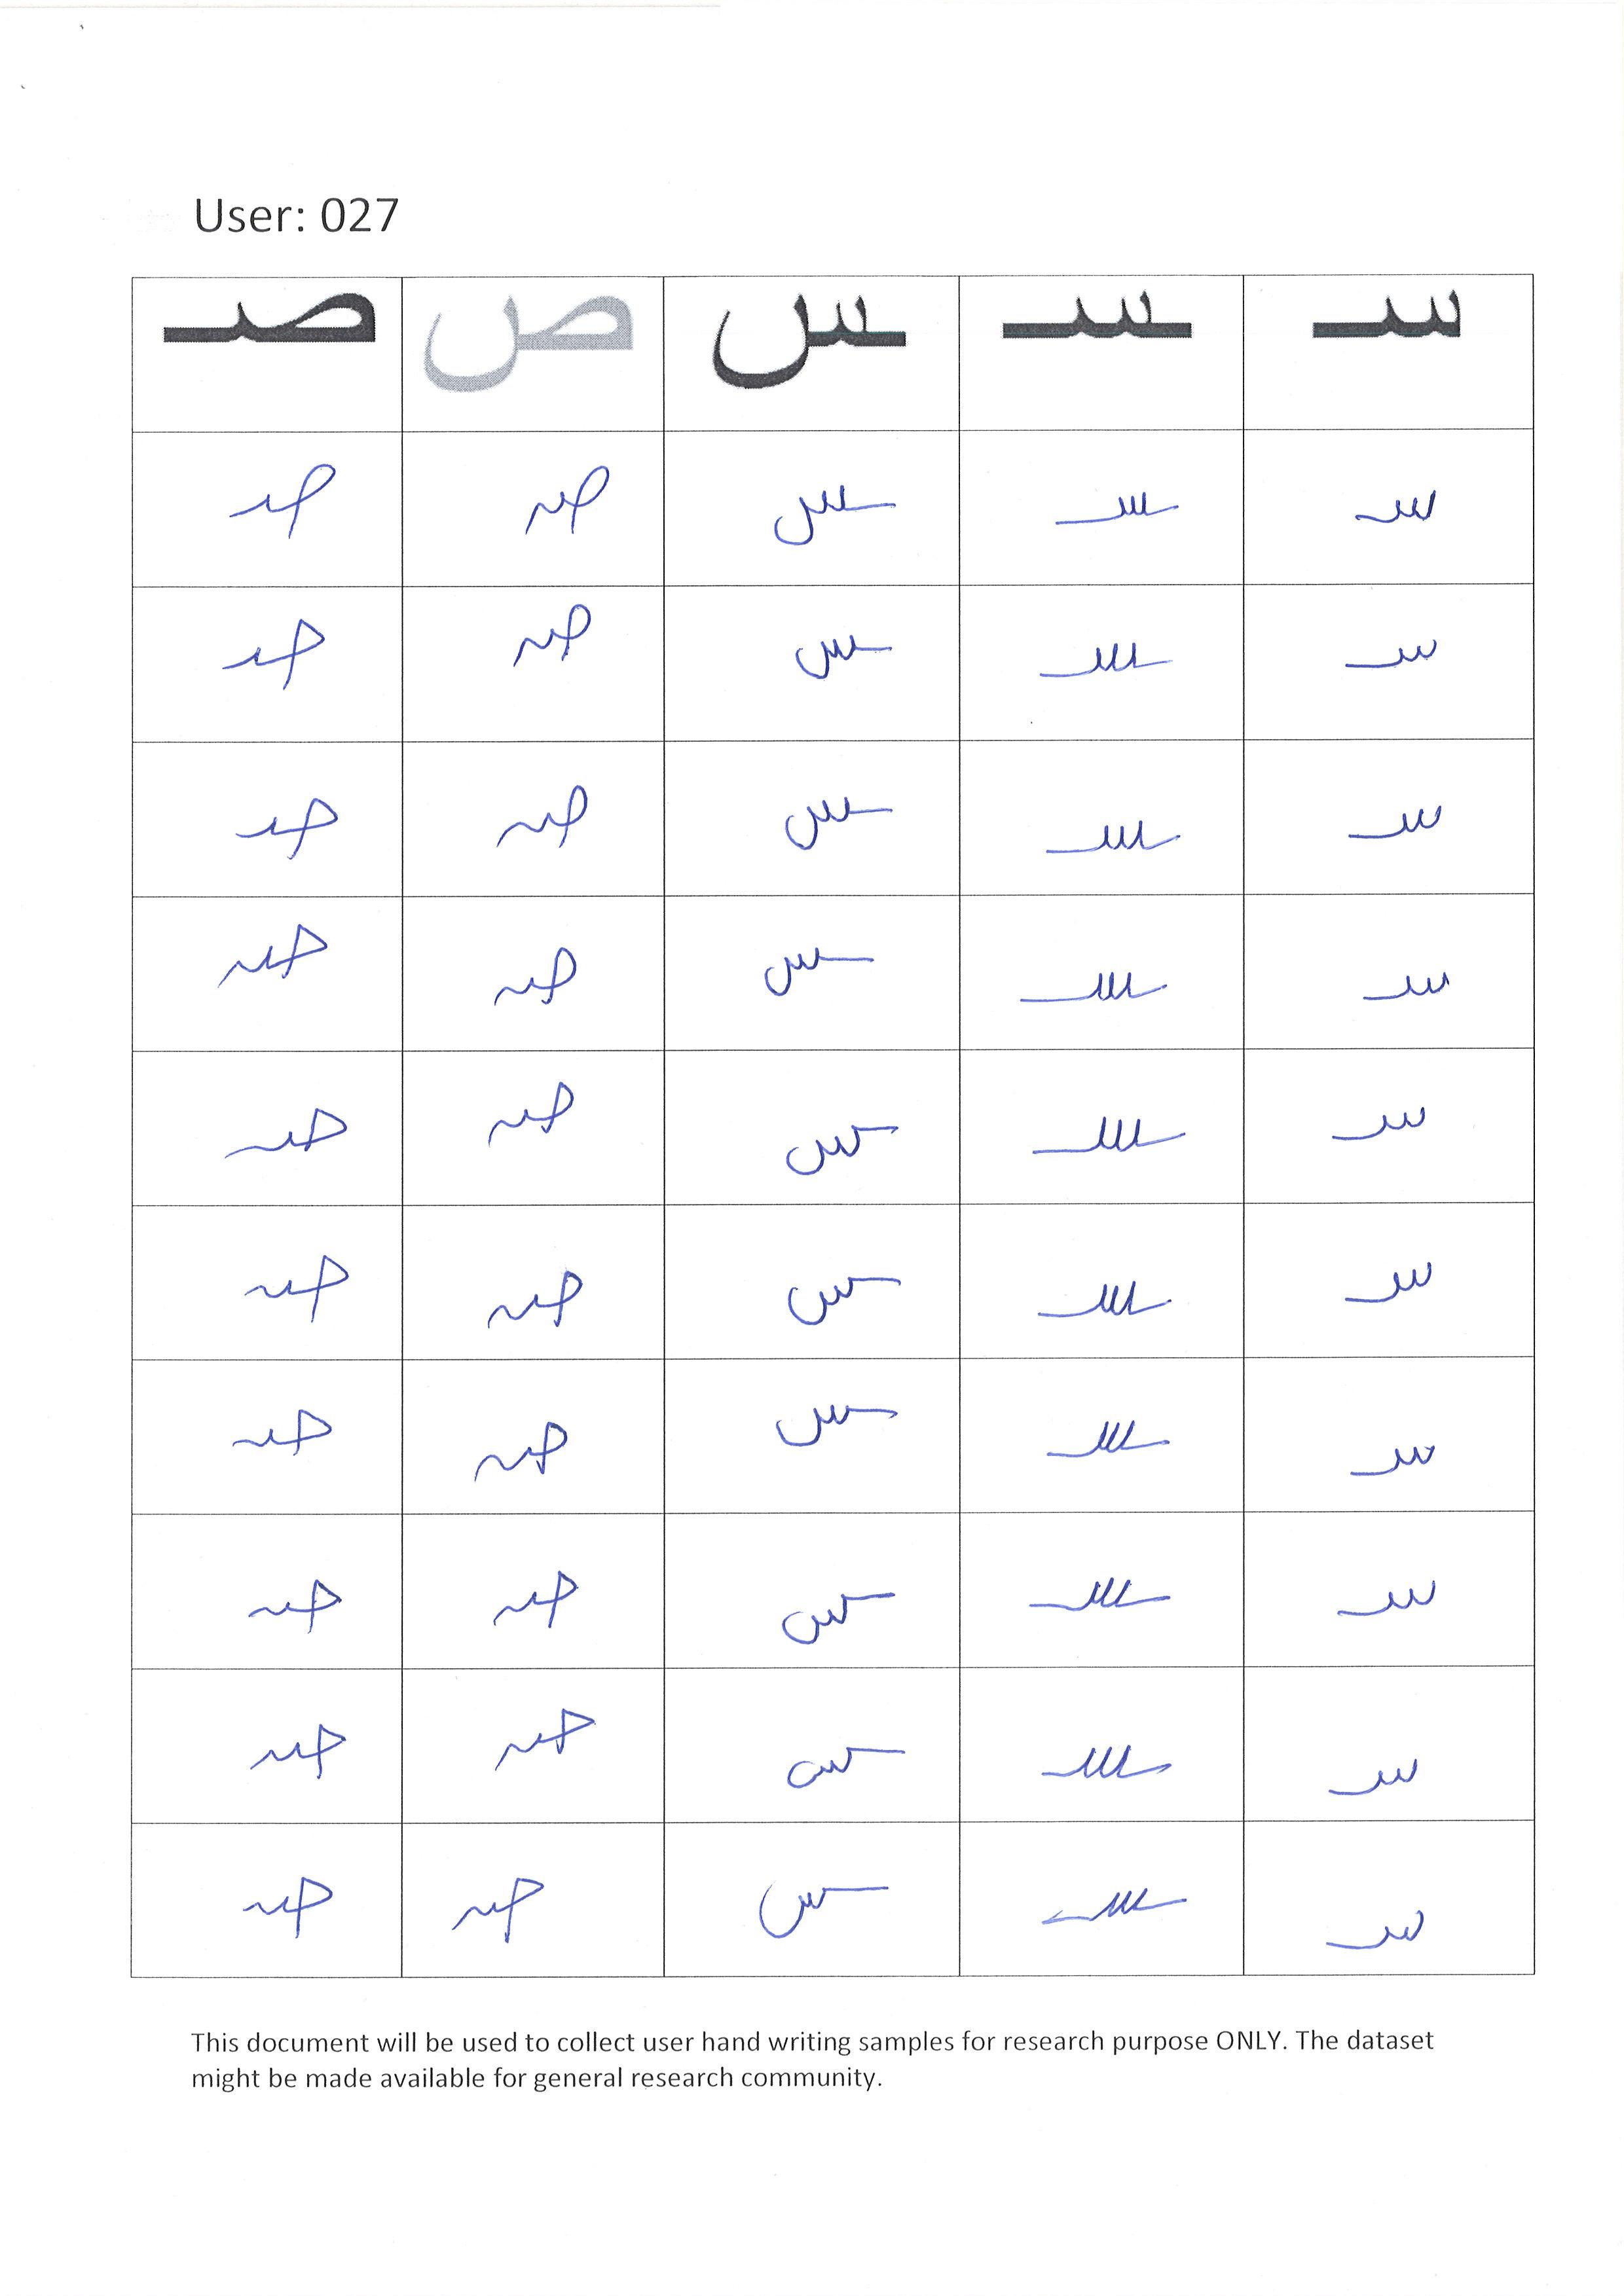 User: 027
سـ ـسـ ـس ص صـ
سـ ـسـ ـس صـ صـ
سـ ـسـ ـس صـ صـ
سـ ـسـ ـس صـ صـ
سـ ـسـ ـس صـ صـ
سـ ـسـ ـس صـ صـ
سـ ـسـ ـس صـ صـ
سـ ـسـ ـس صـ صـ
سـ ـسـ ـس صـ صـ
سـ ـسـ ـس صـ صـ
سـ ـسـ ـس صـ صـ
This document will be used to collect user hand writing samples for research purpose ONLY. The dataset
might be made available for general research community.